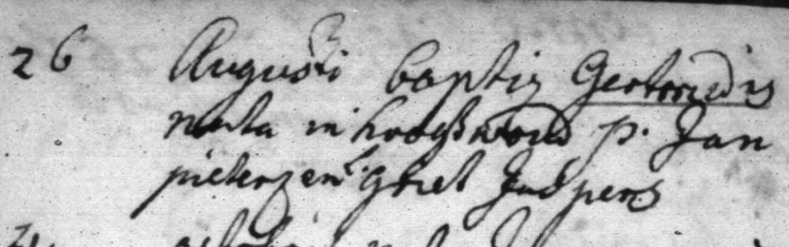 26 Augusti baptiz Gertrudis
nata in hoogwoud p. Jan
pieterzen Griet